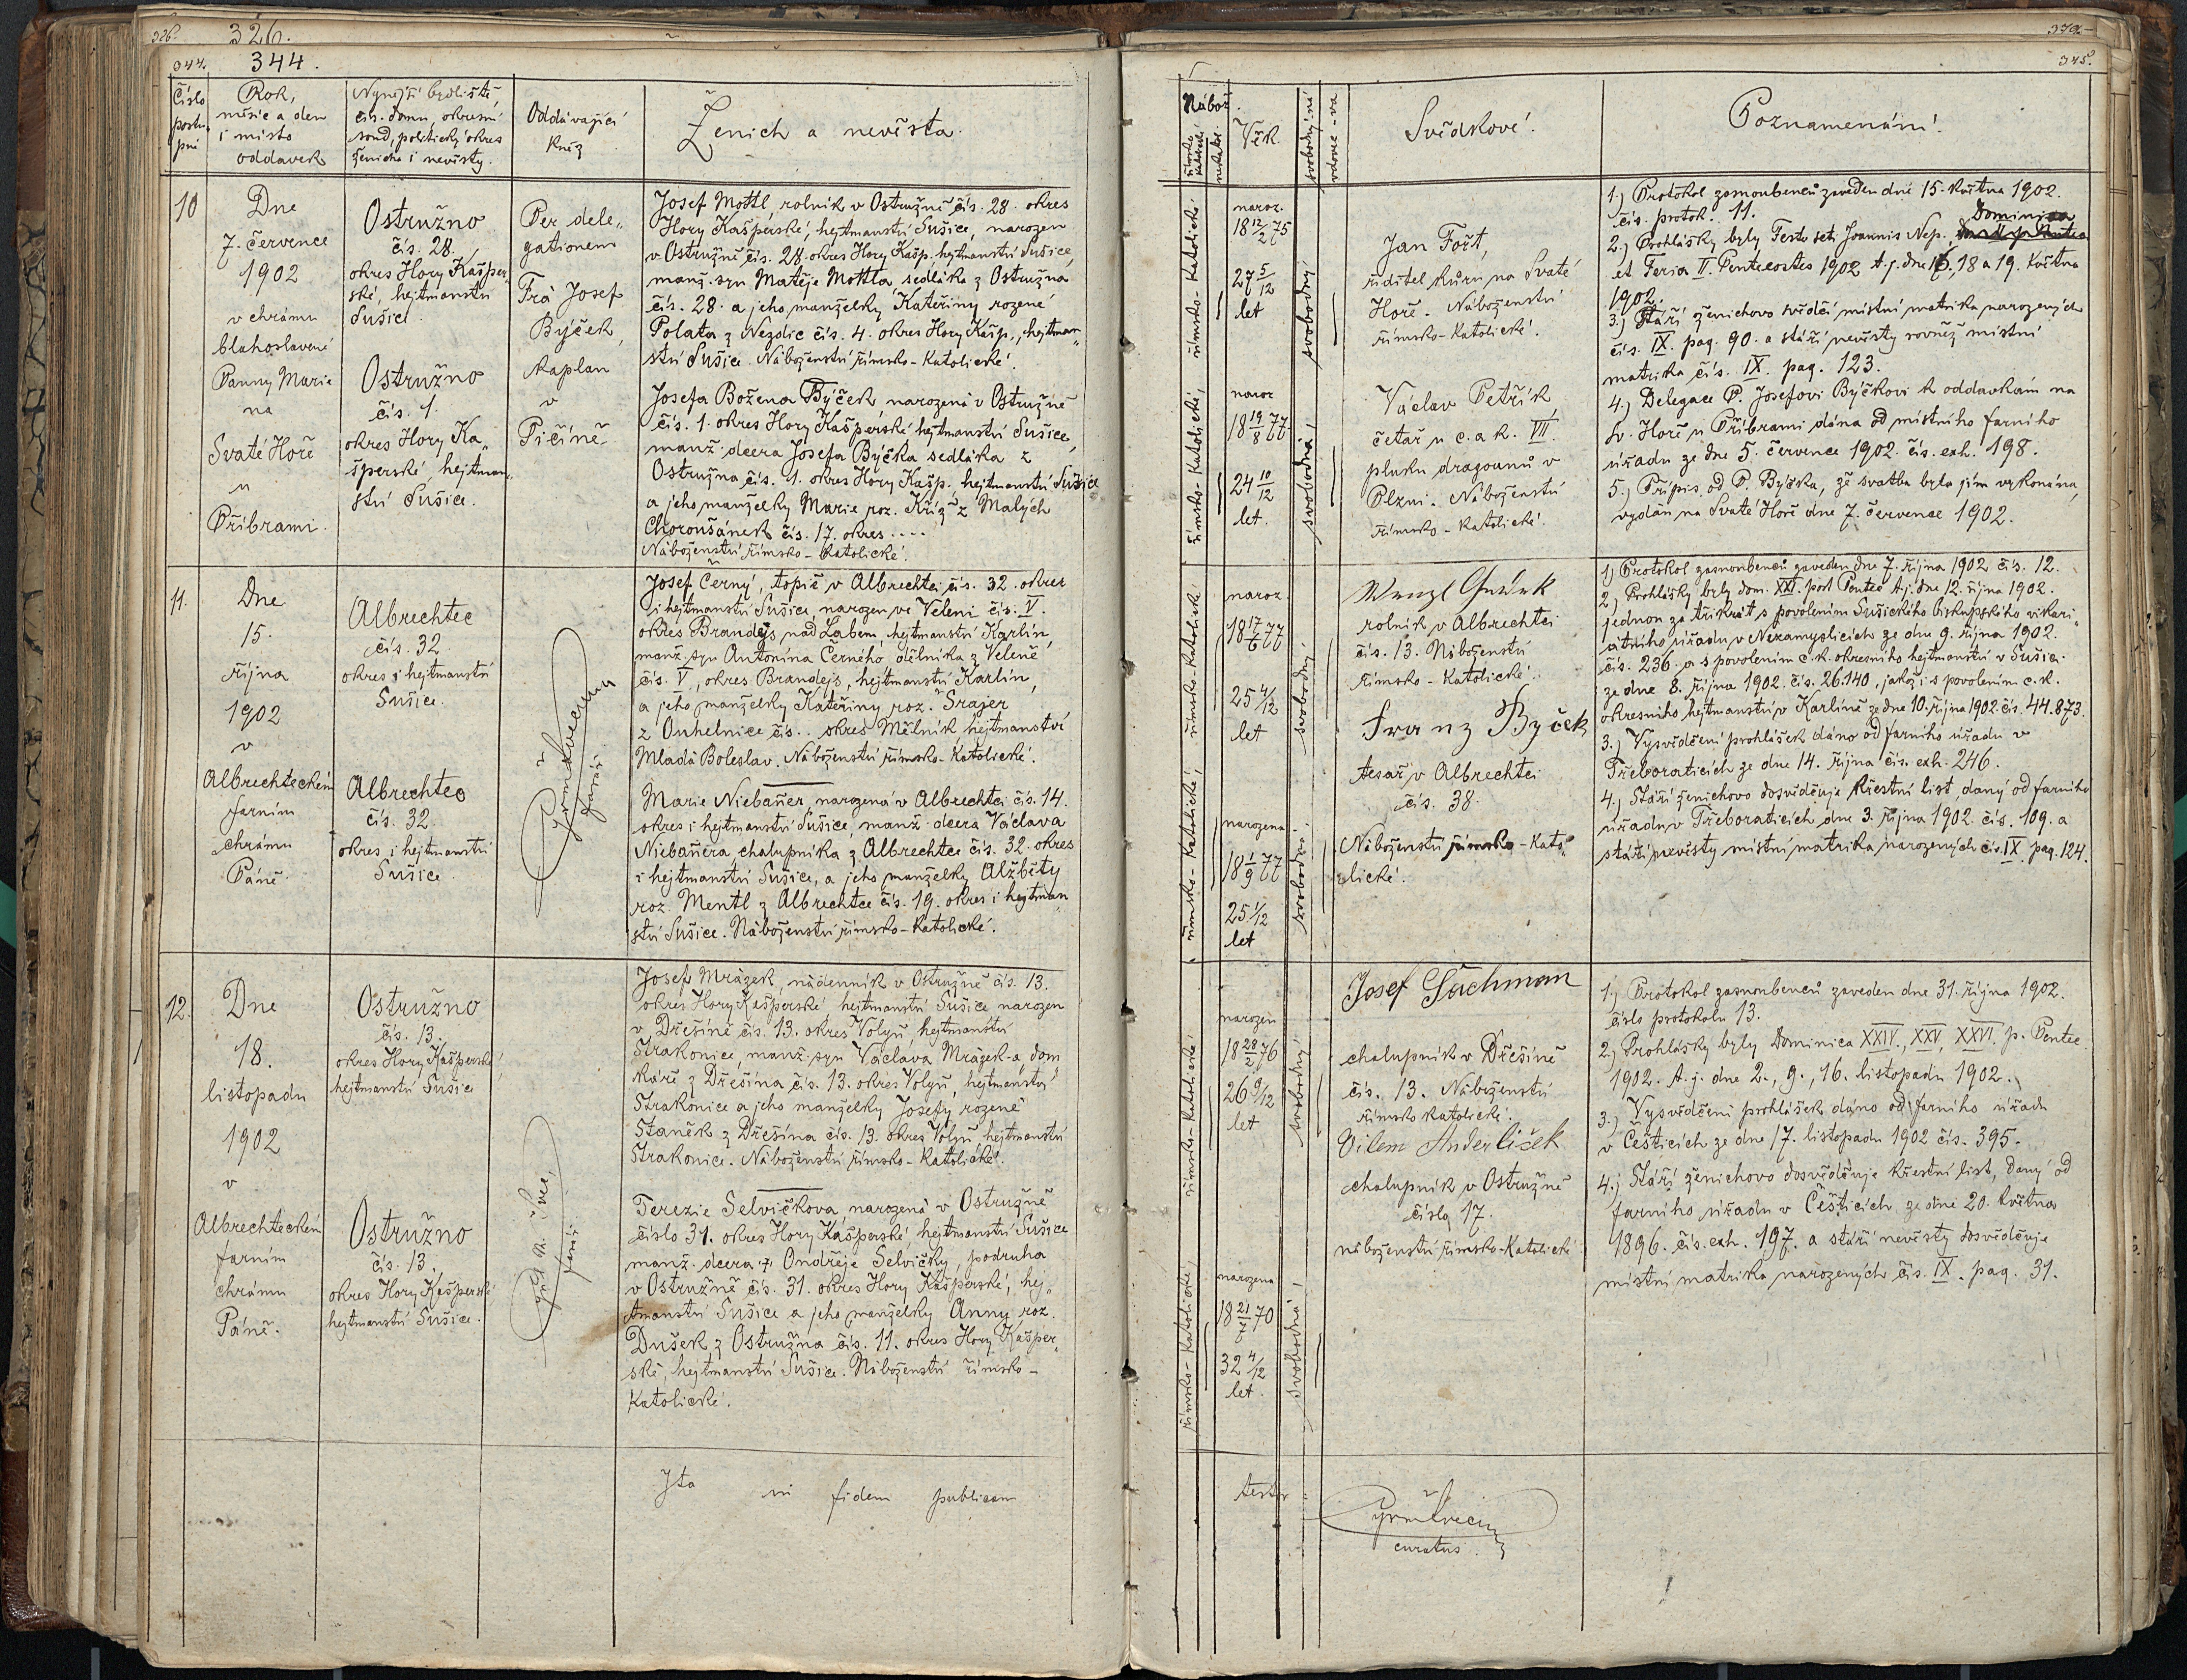 326.
326.
344.
344.
Číslo
postu-
pné
Rok,
měsíc a den
i místo
oddavek
Nynější bydliště,
čís. domu, okresní
soud, politický okres
ženicha i nevěsty.
Oddávající
kněz
Ženich a nevěsta.
10
Dne
7. července
1902
v chrámu
blahoslavené
Panny Marie
na
Svaté Hoře
u
Příbrami.
Ostružno
čís. 28
okres Hory Kašper-
ské, hejtmanství
Sušice.
Ostružno
čís. 1.
okres Hory Ka-
šperské hejtman-
ství Sušice.
Per dele-
gationem
Josef
Býček,
kaplan
v
Pičíně
Josef Mottl, rolník v Ostružně čís. 28. okres
Hory Kašperské, hejtmanství Sušice, narozen
v Ostružně čís. 28. okres Hory Kašp. hejtmanství Sušice,
manž. syn Matěje Mottla sedláka z Ostružna
čís. 28. a jeho manželky Kateřiny rozené
Polata z Nezdic čís. 4. okres Hory Kašp., hejtman-
ství Sušice. Náboženství římsko-katolické.
Josefa Božena Býček, narozená v Ostružně
čís. 1. okres Hory Kašperské hejtmanství Sušice,
manž. dcera Josefa Býčka sedláka z
Ostružna čís. 1. okres Hory Kašp. hejtmanství Sušice
a jeho manželky Marie roz. Kříž z Malých
Choroušánek čís. 17. okres ....
Náboženství římsko-katolické.
11.
Dne
15.
října
1902
v
Albrechteckém
farním
chrámu
Páně.
Albrechtec
čís. 32.
okres i hejtmanství
Sušice.
Albrechtec
čís. 32.
okres i hejtmanství
Sušice.
farář.
Josef Černý, topič v Albrechtci čís. 32. okres
i hejtmanství Sušice, narozen ve Veleni čís. V.
okres Brandejs nad Labem, hejtmanství Karlín,
manž. syn Antonína Černého, dělníka z Veleně
čís. V., okres Brandejs, hejtmanství Karlín,
a jeho manželky Kateřiny roz. Šrajer
z Ouhelnice čís... okres Mělník, hejtmanství
Mladá Boleslav. Náboženství římsko-katolické.
Marie Niebauer, narozená v Albrechtci čís. 14.
okres i hejtmanství Sušice, manž. dcera Václava
Niebauera, chalupníka z Albrechtce čís. 32. okres
i hejtmanství Sušice, a jeho manželky Alžběty
roz. Mentl z Albrechtce čís. 19. okres i hejtman-
ství Sušice. Náboženství římsko-katolické.
12.
Dne
18.
listopadu
1902
v
Albrechteckém
farním
chrámu
Páně.
Ostružno
čís. 13
okres Hory Kašperské,
hejtmanství Sušice
Ostružno
čís. 13.
okres Hory Kašperské
hejtmanství Sušice.
farář
Josef Mrázek, nádenník v Ostružně čís. 13.
okres Hory Kašperské hejtmanství Sušice narozen
v Dřešíně čís. 13. okres Volyň, hejtmanství
Strakonice, manž. syn Václava Mrázek-a, dom-
káře z Dřešína čís. 13. okres Volyň, hejtmanství
Strakonice a jeho manželky Josefy, rozené
Staněk z Dřešína čís. 13. okres Volyň, hejtmanství
Strakonice. Náboženství římsko-katolické.
Terezie Selvičkova, narozená v Ostružně
číslo 31. okres Hory Kašperské hejtmanství Sušice
manž. dcera † Ondřeje Selvičky, podruha
v Ostružně čís. 31. okres Hory Kašperské, hej-
tmanství Sušice a jeho manželky Anny roz.
Dušek z Ostružna čís. 11. okres Hory Kašper-
ské, hejtmanství Sušice. Náboženství římsko-
katolické.
Ita in fidem publicam
345.
Nábož.
římsko-
katolické
nekatol.
Věk.
svobodný-ná
vdovec-va
Svědkové.
Poznamenání.
římsko-katolické, římsko-katolické
naroz.
18 12/2 75
27 5/12
let
svobodný
naroz
18 19/8 77
24 10/12
let.
svobodná,
Jan Fořt,
ředitel kůru na Svaté
Hoře. Náboženství
římsko-katolické.
Václav Petřík
četař u c. a k. VII.
pluku dragounů v
Plzni. Náboženství
římsko-katolické.
1.) Protokol zasnoubenců zaveden dne 15. května 1902.
čís. protok. 11.
2.) Prohlášky byly Festo scti Joannis Nep. Dominica
et Feria II. Pentecostes 1902 t. j. dne 16., 18 a 19. května
1902.
3.) Stáří ženichovo svědčí místní matrika narozených
čís. IX. pag. 90. a stáří nevěsty rovněž místní
matrika čís. IX. pag. 123.
4.) Delegace P. Josefovi Býčkovi k oddavkám na
Sv. Hoře u Příbrami dána od místního farního
úřadu ze dne 5. července 1902. čís. exh. 198.
5.) Přípis od P. Býčka, že svatba byla jím vykonána,
vydán na Svaté Hoře dne 7. července 1902.
římsko-katolická, římsko-katolické
naroz.
18 17/6 77
25 4/12
let
svobodný
narozena
18 1/9 77
25 1/12
let
svobodná.
Wenzl
rolník v Albrechtci
čís. 13. Náboženství
římsko-katolické.
Franz Byček
tesař v Albrechtci
čís. 38.
Náboženství římsko-kato-
lické.
1.) Protokol zasnoubenců zaveden dne 7. října 1902 čís. 12.
2.) Prohlášky byly dom. XXI. post Pentec t. j. dne 12. října 1902.
jednou za třikrát s povolením Sušického biskupského vikari-
átního úřadu v Nezamyslicích ze dne 9. října 1902.
čís. 236. a s povolením c. k. okresního hejtmanství v Sušici
ze dne 8. října 1902. čís. 26.140, jakož i s povolením c. k.
okresního hejtmanství v Karlíně ze dne 10. října 1902 čís. 44.873.
3.) Vysvědčení prohlášek dáno od farního úřadu v
Třeboraticích ze dne 14. října čís. exh. 246.
4.) Stáří ženichovo dosvědčuje křestní list daný od farního
úřadu v Třeboraticích dne 3. října 1902. čís. 109. a
stáří nevěsty místní matrika narozených čís. IX. pag. 124.
římsko-katolické, římsko-katolické
narozen
18 28/2 76
26 9/12
let
svobodný
narozena
18 21/7 70
32 4/12
let.
svobodná,
Josef
chalupník v Dřešíně
čís. 13. Náboženství
římsko katolické.
Vilem Anderliček
chalupník v Ostružně
číslo 17.
náboženství římsko-katolické
1.) Protokol zasnoubenců zaveden dne 31. října 1902.
číslo protokolu 13.
2.) Prohlášky byly Dominica XXIV., XXV, XXVI. p. Pentec.
1902. t. j. dne 2., 9., 16. listopadu 1902.
3.) Vysvědčení prohlášek dáno od farního úřadu
v Češticích ze dne 17. listopadu 1902 čís. 395.
4.) Stáří ženichovo dosvědčuje křestní list, daný od
farního úřadu v Češticích ze dne 20. května
1896. čís. exh. 197. a stáří nevěsty dosvědčuje
místní matrika narozených čís. IX. pag. 31.
testor
curatus.